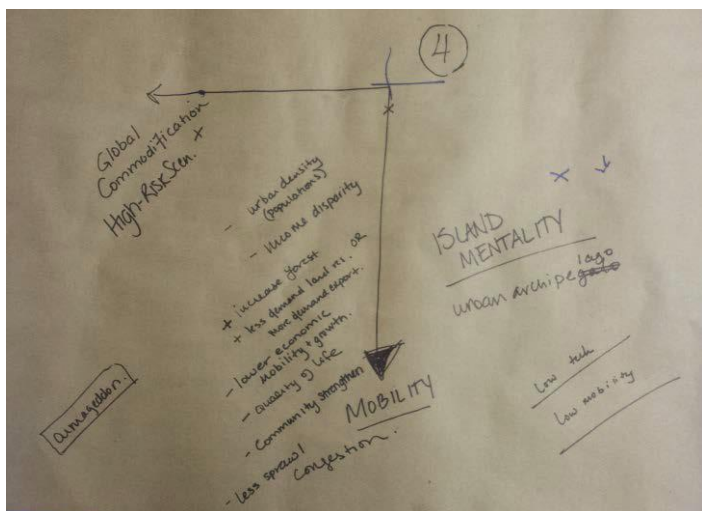 4
Global
Commodification
High-Risk Scen. +
- urban density
(populations)
- income disparity
+ increase forest
+ less demand land res. OR
more demand export.
- lower economic
mobility + growth.
- Quality of life
- Community strengthen
- less sprawl
congestion.
MOBILITY
armageddon.
x ↓
ISLAND
MENTALITY
urban archipelago
low tech
low mobility